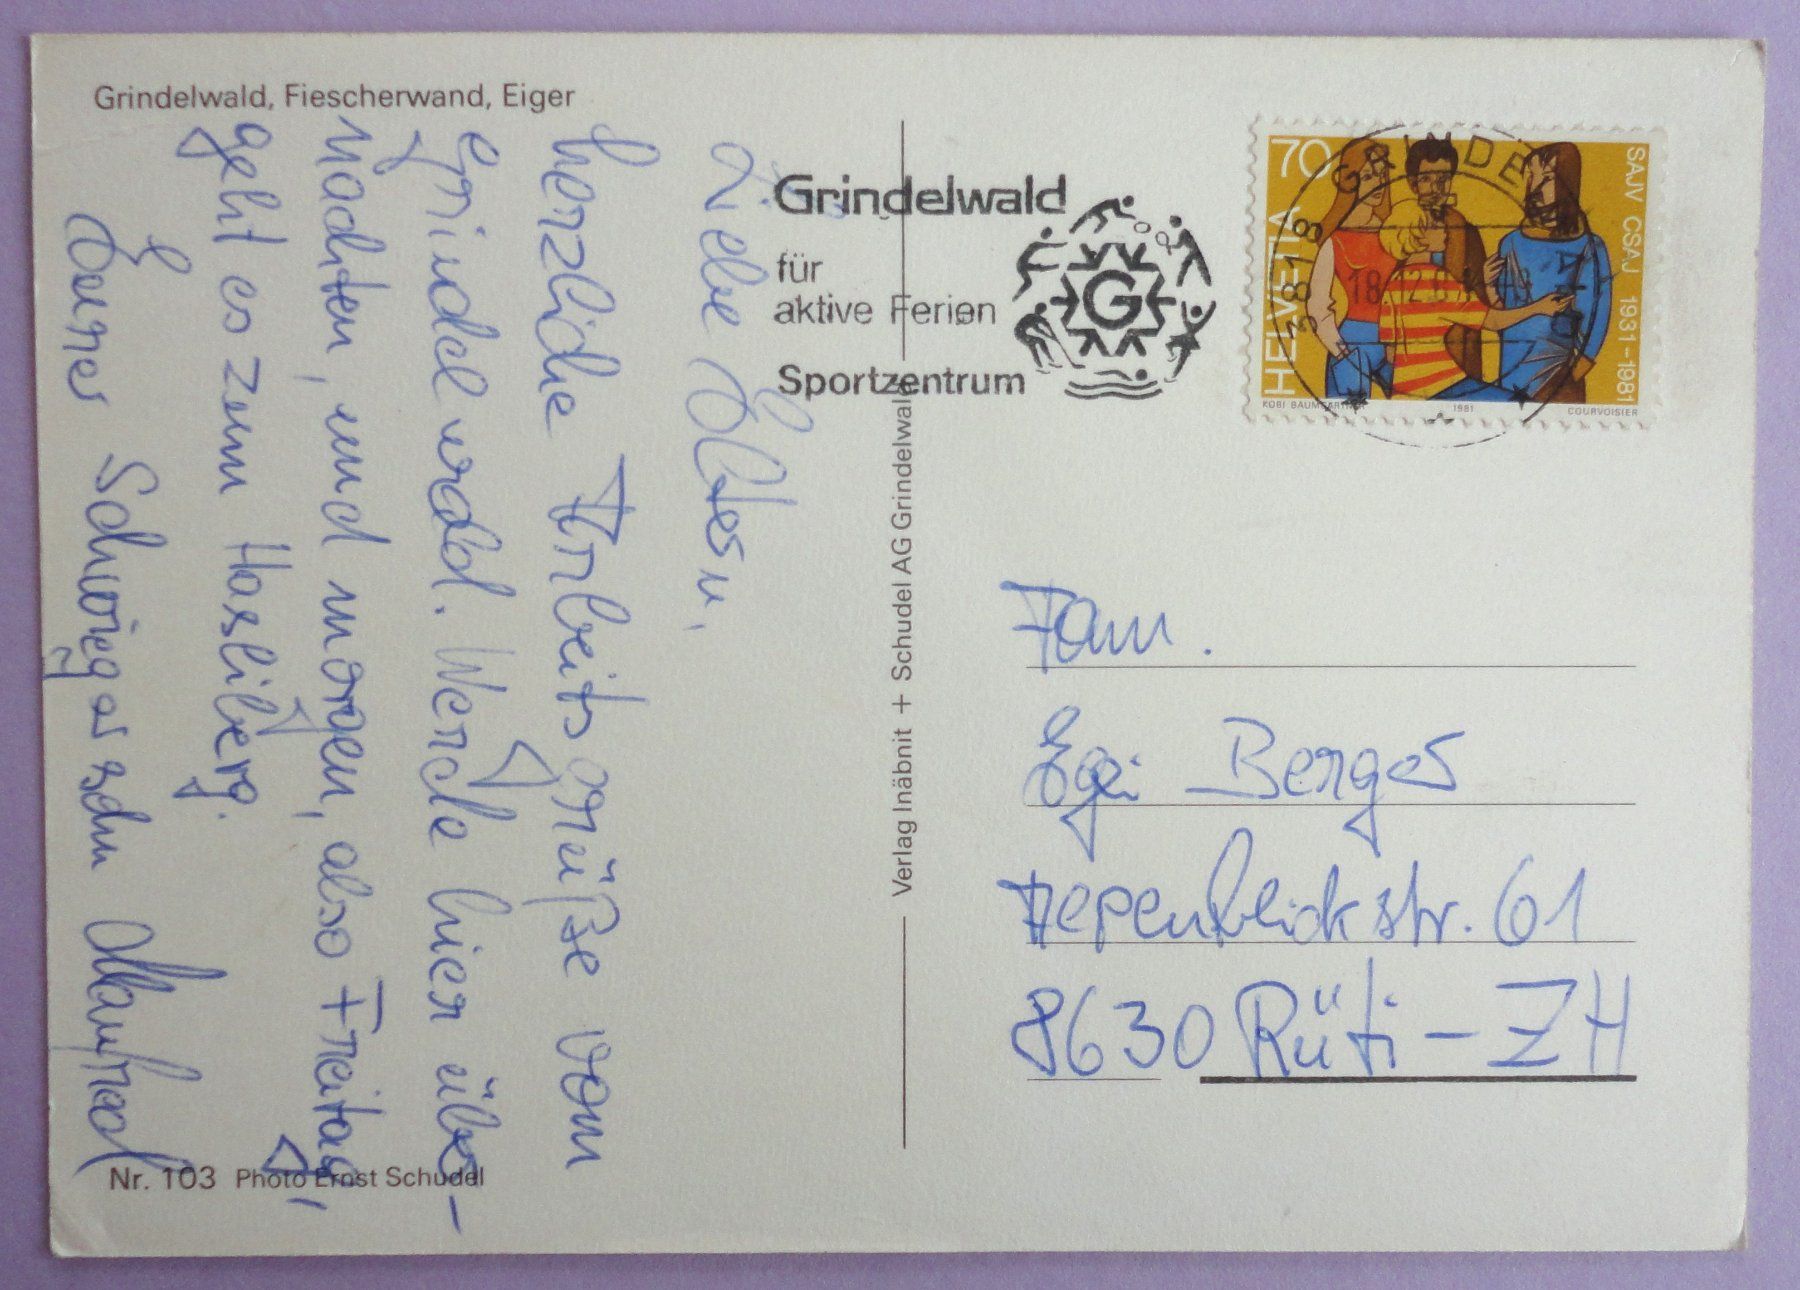 Grindelwald, Fiescherwand, Eiger
Liebe Eltern,
herzliche Arbeitsgrüße vom
Grindelwald. Werde hier über-
nachten, und morgen, also Freitag,
geht es zum Hasliberg.
Euer Schwiegersohn Manfred
Nr. 103 Photo Ernst Schudel
Verlag Inäbnit + Schudel AG Grindelwald
Grindelwald
für
aktive Ferien
Sportzentrum
G
70
HELVETIA
SAJV CSAJ 1931-1981
KOBI BAUMGARTNER 1981 COURVOISIER
3818 GRINDELWALD
Fam.
Egi Berger
8630 Rüti-ZH